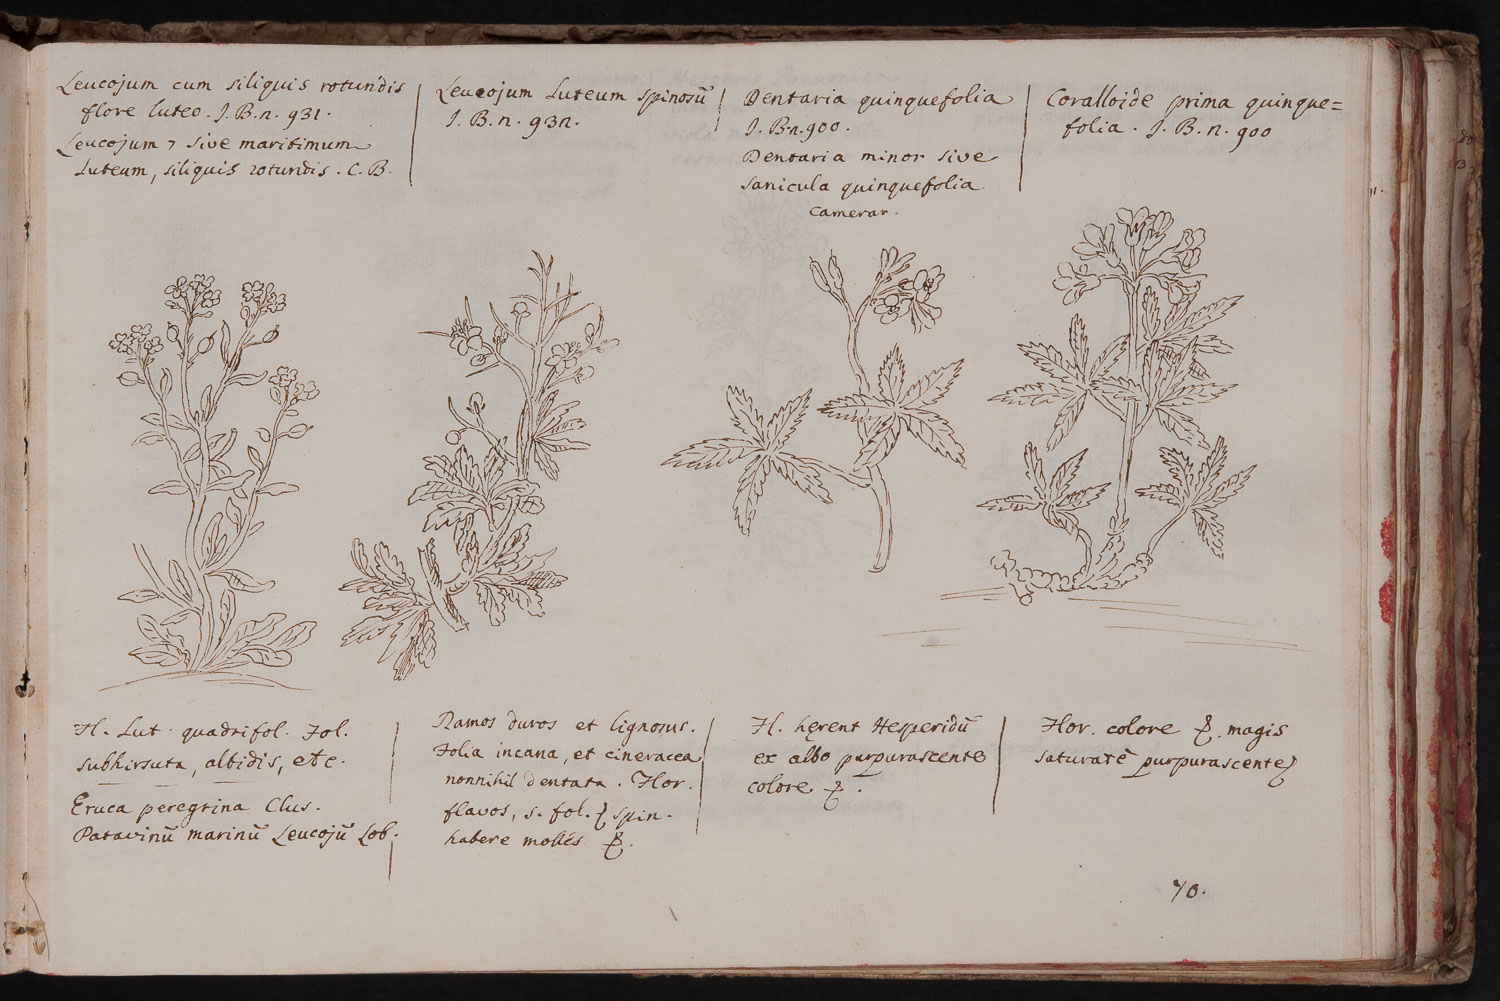 Leucojum cum siliquis rotundis
flore luteo. J. B. n. 931.
Leucojum 7 sive maritimum
Luteum, siliquis rotundis. C. B.
Leucojum Luteum spinosū
J. B. n. 932.
Dentaria quinquefolia
J. B. n. 900.
Dentaria minor sive
sanicula quinquefolia
camerar.
Coralloide prima quinque=
folia. J. B. n. 900
Fl. Lut. quadrifol. Fol.
subhirsuta, albidis, etc.
Eruca peregrina Clus.
Patavinū marinū Leucojū Lob.
Ramos duros et lignosus.
Folia incana, et cineracea
nonnihil dentata. Flor.
flavos, s. fol. spin.
habere molles
Fl. hęrent Hesperidū
ex albo purpurascente
colore.
Flor. colore magis
saturatè purpurascente
70.